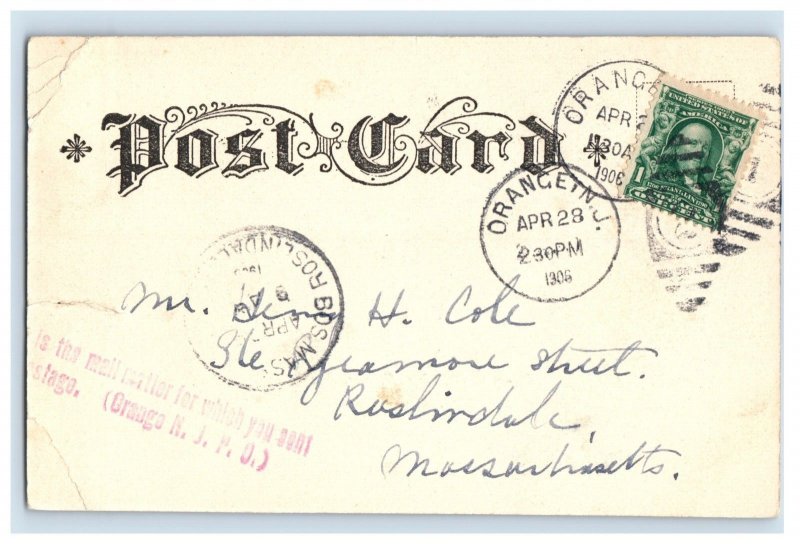 Post Card
ORANGE
APR
30A
1906
UNITED STATES OF
AMERICA
1
ORANGE, N.J.
APR 28
230PM
1906
ROSLINDALE
BOS. MAS
APR
Mr. H. Cole
Sycamore street.
Roslindale,
Massachusetts.
is the mail matter for which you sent
stage. (Orange N. J. P. O.)